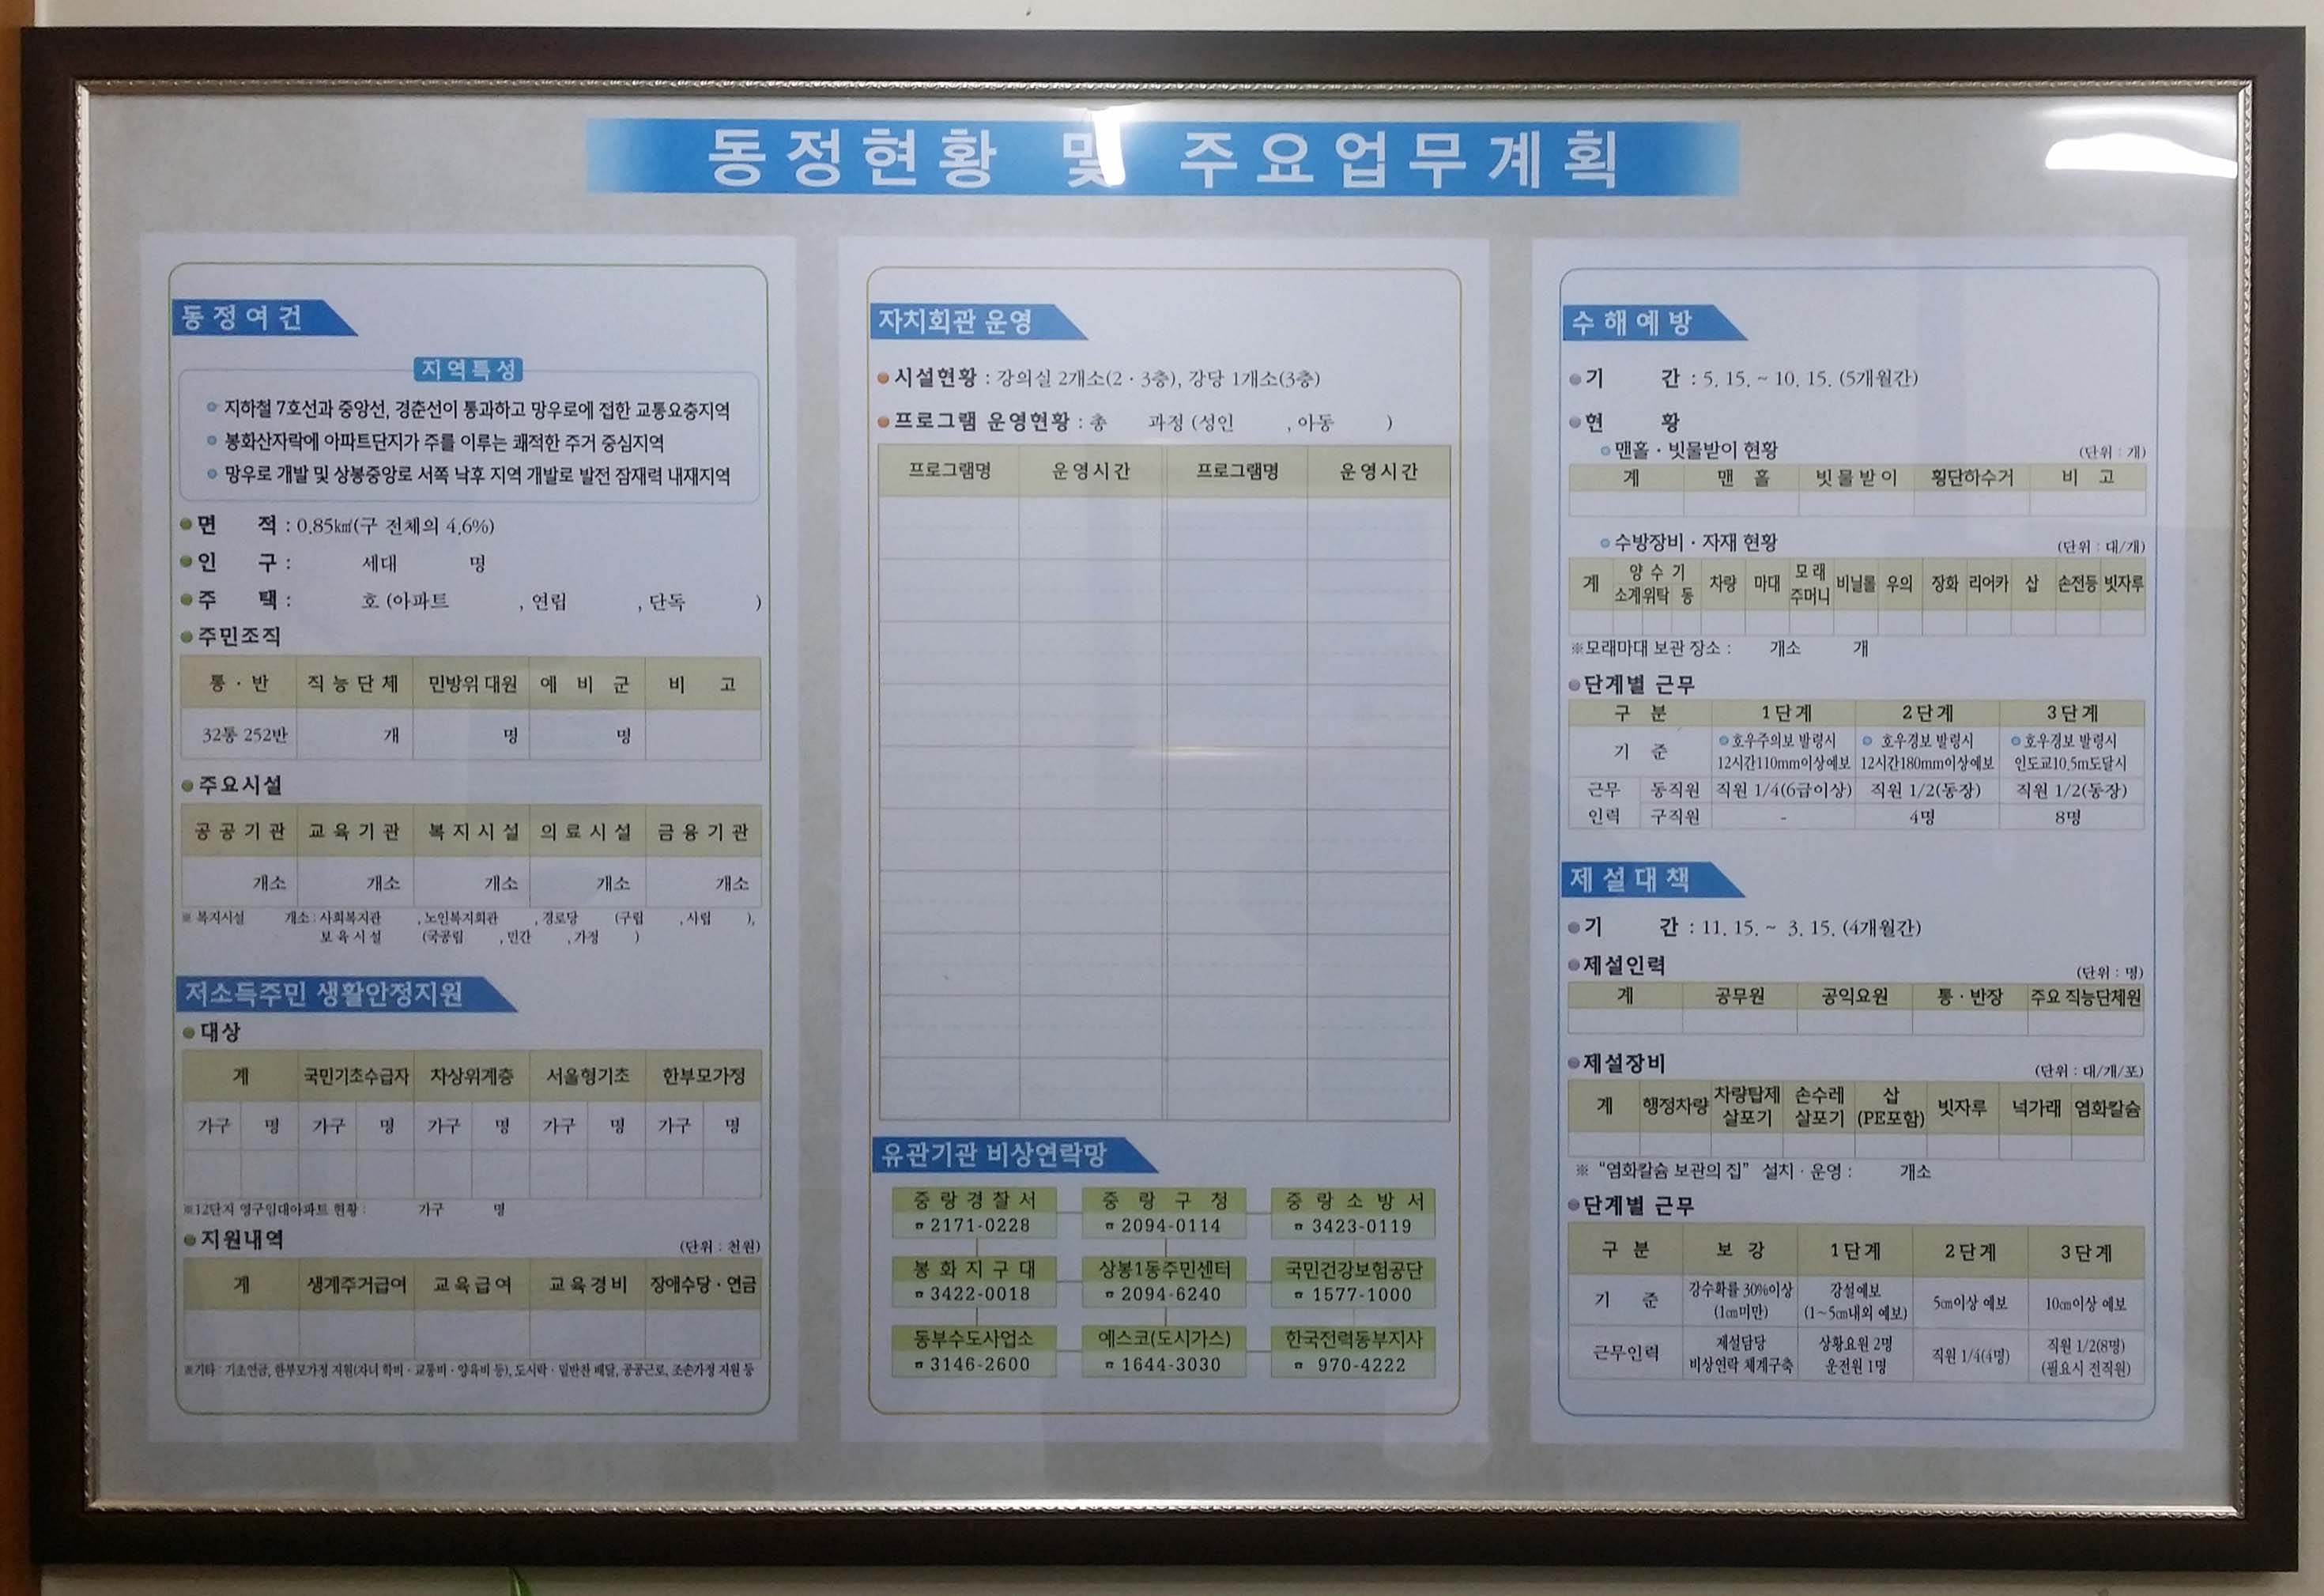 동정현황 및 주요업무계획
동정여건
지역특성
지하철 7호선과 중앙선, 경춘선이 통과하고 망우로에 접한 교통요충지역
봉화산자락에 아파트단지가 주를 이루는 쾌적한 주거 중심지역
망우로 개발 및 상봉중앙로 서쪽 낙후 지역 개발로 발전 잠재력 내재지역
면 적 : 0.85㎢(구 전체의 4.6%)
인 구 : 세대 명
주 택 : 호 (아파트 , 연립 , 단독 )
주민조직
통·반 직능단체 민방위 대원 예 비 군 비 고
32통 252반 개 명 명
주요시설
공공기관 교육기관 복지시설 의료시설 금융기관
개소 개소 개소 개소 개소
※ 복지시설 개소 : 사회복지관 , 노인복지회관 , 경로당 (구립 , 사립 ),
보육시설 (국공립 , 민간 , 가정 )
저소득주민 생활안정지원
대상
계 국민기초수급자 차상위계층 서울형기초 한부모가정
가구 명 가구 명 가구 명 가구 명 가구 명
※12단지 영구임대아파트 현황 : 가구 명
지원내역 (단위 : 천원)
계 생계주거급여 교육급여 교육경비 장애수당·연금
※기타 : 기초연금, 한부모가정 지원(자녀 학비·교통비·양육비 등), 도시락·밑반찬 배달, 공공근로, 조손가정 지원 등
자치회관 운영
시설현황 : 강의실 2개소(2·3층), 강당 1개소(3층)
프로그램 운영현황 : 총 과정 (성인 , 아동 )
프로그램명 운영시간 프로그램명 운영시간
유관기관 비상연락망
중랑경찰서 중랑구청 중랑소방서
☎ 2171-0228 ☎ 2094-0114 ☎ 3423-0119
봉화지구대 상봉1동주민센터 국민건강보험공단
☎ 3422-0018 ☎ 2094-6240 ☎ 1577-1000
동부수도사업소 예스코(도시가스) 한국전력동부지사
☎ 3146-2600 ☎ 1644-3030 ☎ 970-4222
수해예방
기 간 : 5. 15. ~ 10. 15. (5개월간)
현 황
맨홀·빗물받이 현황 (단위 : 개)
계 맨 홀 빗물받이 횡단하수거 비 고
수방장비·자재 현황 (단위 : 대/개)
계 양수기 차량 마대 모래주머니 비닐롤 우의 장화 리어카 삽 손전등 빗자루
소계 위탁 동
※모래마대 보관 장소 : 개소 개
단계별 근무
구 분 1단계 2단계 3단계
기 준 호우주의보 발령시 호우경보 발령시 호우경보 발령시
12시간110mm이상예보 12시간180mm이상예보 인도교10.5m도달시
근무 동직원 직원 1/4(6급이상) 직원 1/2(동장) 직원 1/2(동장)
인력 구직원 - 4명 8명
제설대책
기 간 : 11. 15. ~ 3. 15. (4개월간)
제설인력 (단위 : 명)
계 공무원 공익요원 통·반장 주요 직능단체원
제설장비 (단위 : 대/개/포)
계 행정차량 차량탑제 살포기 손수레 살포기 삽 (PE포함) 빗자루 넉가래 염화칼슘
※ "염화칼슘 보관의 집" 설치·운영 : 개소
단계별 근무
구 분 보 강 1단계 2단계 3단계
기 준 강수확률 30%이상 강설예보 5㎝이상 예보 10㎝이상 예보
(1㎝미만) (1~5㎝내외 예보)
근무인력 제설담당 상황요원 2명 직원 1/4(4명) 직원 1/2(8명)
비상연락 체계구축 운전원 1명 (필요시 전직원)